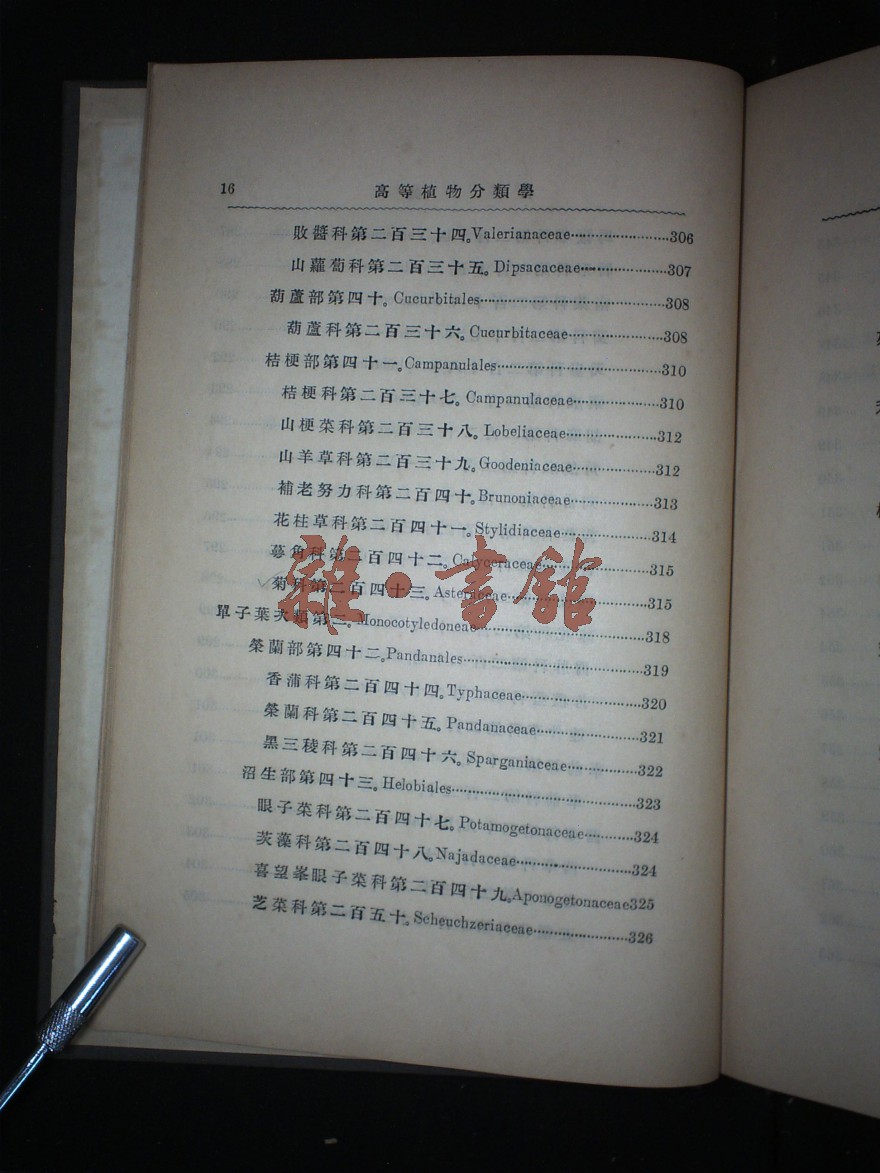 16 高等植物分類學
敗醬科第二百三十四。Valerianaceae........................306
山蘿蔔科第二百三十五。Dipsacaceae........................307
葫蘆部第四十。Cucurbitales........................308
葫蘆科第二百三十六。Cucurbitaceae........................308
桔梗部第四十一。Campanulales........................310
桔梗科第二百三十七。Campanulaceae........................310
山梗菜科第二百三十八。Lobeliaceae........................312
山羊草科第二百三十九。Goodeniaceae........................312
補老努力科第二百四十。Brunoniaceae........................313
花柱草科第二百四十一。Stylidiaceae........................314
萼角科第二百四十二。Calyceraceae........................315
菊科第二百四十三。Asteraceae........................315
單子葉次類第二。Monocotyledoneae........................318
榮蘭部第四十二。Pandanales........................319
香蒲科第二百四十四。Typhaceae........................320
榮蘭科第二百四十五。Pandanaceae........................321
黑三稜科第二百四十六。Sparganiaceae........................322
沼生部第四十三。Helobiales........................323
眼子菜科第二百四十七。Potamogetonaceae............324
茨藻科第二百四十八。Najadaceae........................324
喜望峯眼子菜科第二百四十九。Aponogetonaceae325
芝菜科第二百五十。Scheuchzeriaceae........................326
雜·書館